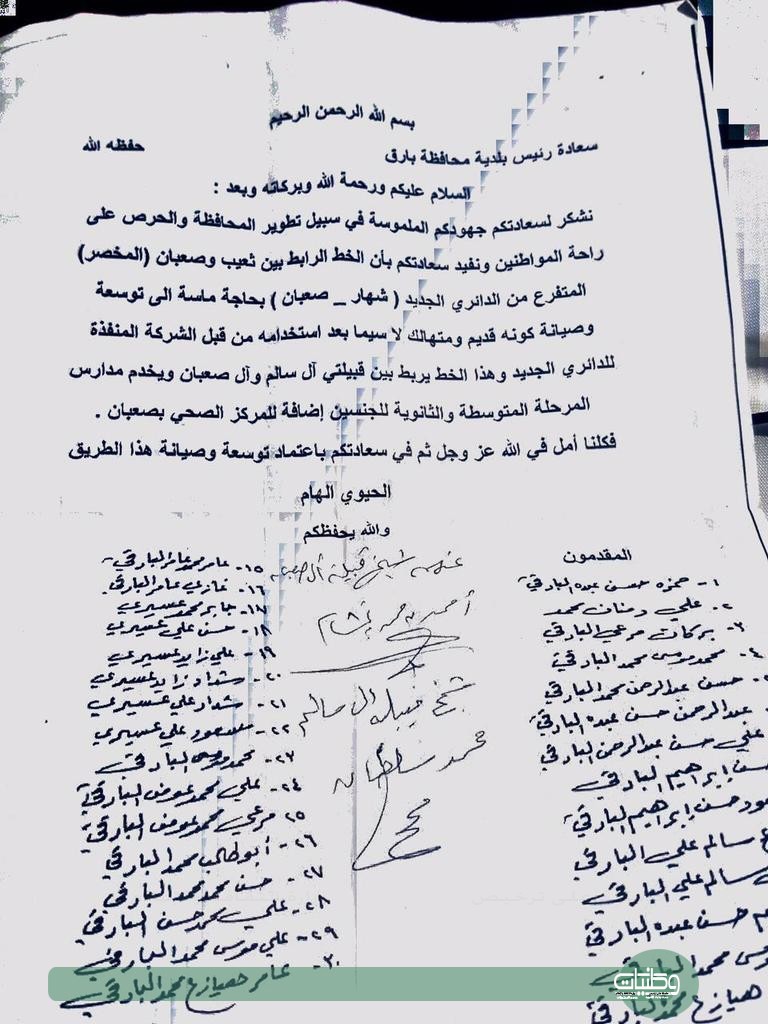 بسم الله الرحمن الرحيم
سعادة رئيس بلدية محافظة بارق حفظه الله
السلام عليكم ورحمة الله وبركاته وبعد :
نشكر لسعادتكم جهودكم الملموسة في سبيل تطوير المحافظة والحرص على
راحة المواطنين ونفيد سعادتكم بأن الخط الرابط بين ثعيب وصعبان (المخصر)
المتفرع من الدائري الجديد ( شهار _ صعبان ) بحاجة ماسة الى توسعة
وصيانة كونه قديم ومتهالك لا سيما بعد استخدامه من قبل الشركة المنفذة
للدائري الجديد وهذا الخط يربط بين قبيلتي آل سالم وآل صعبان ويخدم مدارس
المرحلة المتوسطة والثانوية للجنسين إضافة للمركز الصحي بصعبان .
فكلنا أمل في الله عز وجل ثم في سعادتكم باعتماد توسعة وصيانة هذا الطريق
الحيوي الهام
والله يحفظكم
المقدمون
١- حمزه حسن عبده البارقي
٢- علي محمد
٣- بركات مرعي البارقي
٤- محمد موسى محمد البارقي
حسن عبدالرحمن محمد البارقي
عبدالرحمن حسن عبده البارقي
علي حسن عبدالرحمن البارقي
إبراهيم البارقي
حسن إبراهيم البارقي
سالم علي البارقي
سالم علي البارقي
حسن عبده البارقي
محمد البارقي
محمد البارقي
شيخ قبيلة آل صعبان
أحمد
شيخ قبيلة آل سالم
محمد سلطان
١٥- عامر محمد عامر البارقي
١٦- غازي عامر البارقي
١٧- جابر محمد عسيري
١٨- حسن علي عسيري
١٩- علي زايد عسيري
٢٠- شداد زايد عسيري
٢١- شداد علي عسيري
٢٢- سعود علي عسيري
٢٣- محمد موسى البارقي
٢٤- علي محمد عوض البارقي
٢٥- مرعي محمد عوض البارقي
٢٦- أبوطالب محمد البارقي
٢٧- حسن محمد محمد البارقي
٢٨- علي محمد حسن البارقي
٢٩- علي موسى محمد البارقي
٣٠- عامر محمد البارقي
وطنيات